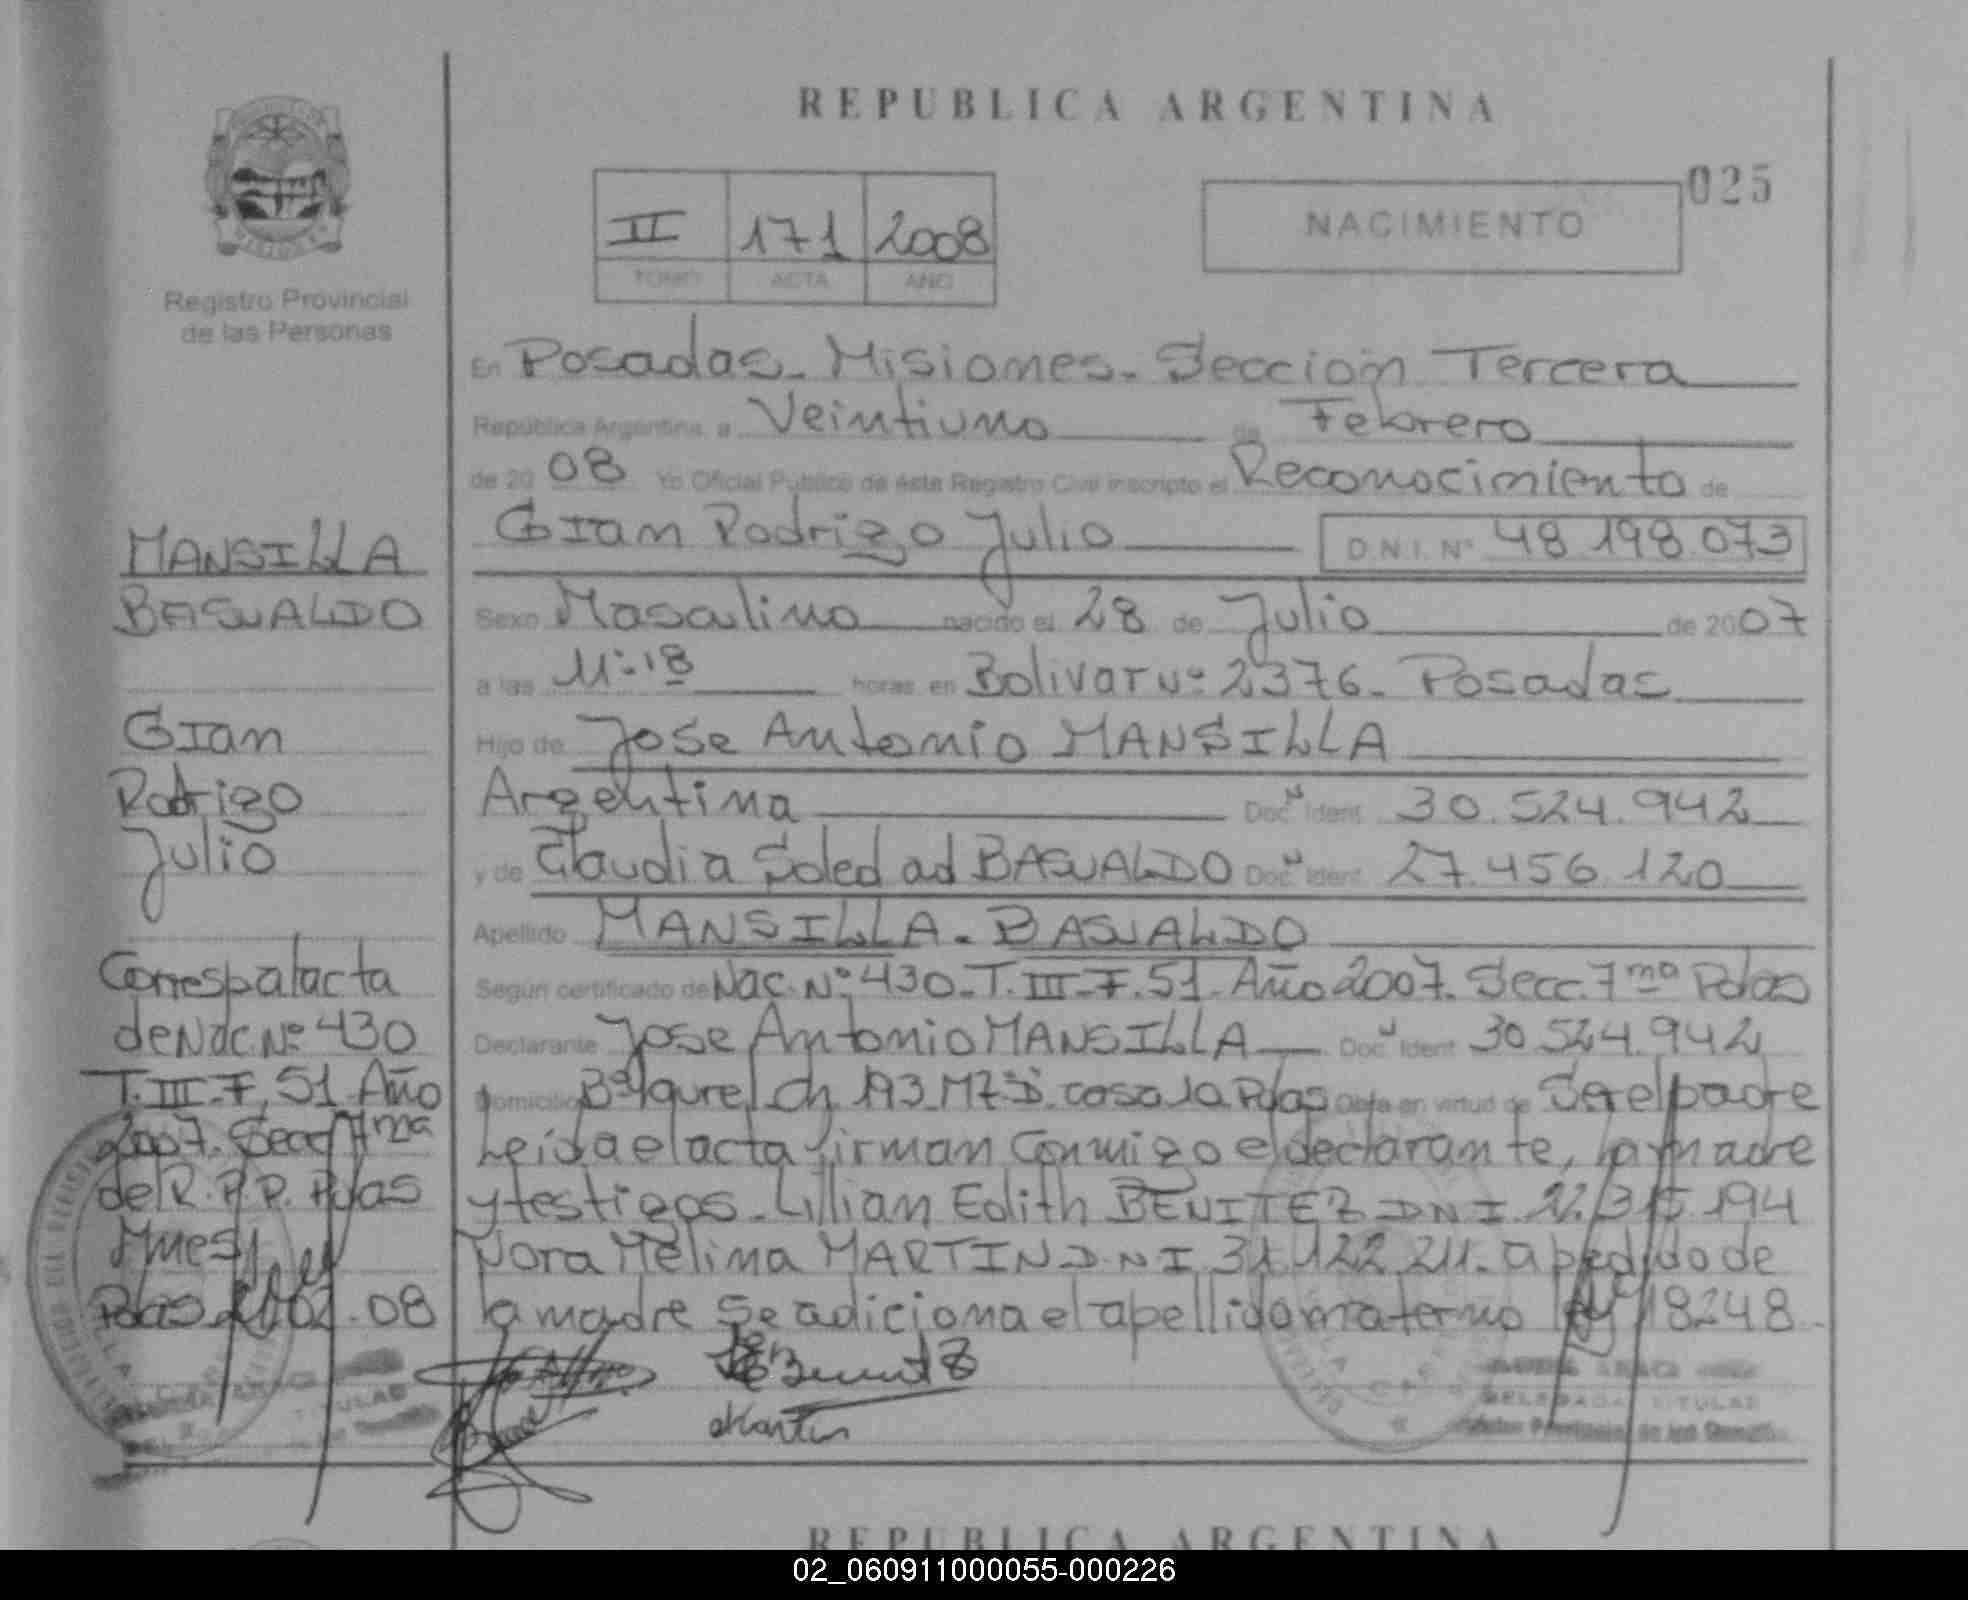 REPUBLICA ARGENTINA
025
II 171 2008
TOMO ACTA AÑO
NACIMIENTO
Registro Provincial
de las Personas
MANSILLA
BASUALDO
Gian
Rodrigo
Julio
Corresp al acta
de Nac. Nº 430
T. III F. 51 Año
2007. Secc 7ma
del R.P.P. Pdas
Mnes
Pdas 21.02.08
En Posadas - Misiones - Sección Tercera
República Argentina, a Veintiuno de Febrero
de 20 08 Yo Oficial Público de éste Registro Civil inscripto el Reconocimiento de
Gian Rodrigo Julio D.N.I. Nº 48 198.073
Sexo Masculino nacido el 28 de Julio de 2007
a las 11:18 horas en Bolivar Nº 2376 - Posadas
Hijo de Jose Antonio MANSILLA
Argentina Doc. Ident. 30.524.942
y de Claudia Soledad BASUALDO Doc. Ident. 27.456.120
Apellido MANSILLA - BASUALDO
Según certificado de Nac. Nº 430 - T. III - F. 51 - Año 2007. Secc. 7ma Pdas
Declarante Jose Antonio MANSILLA Doc. Ident 30.524.942
Domicilio Bº Ch. 193 Mz D. casa Pdas Obra en virtud de Ser el padre
Leída el acta firman Conmigo el declarante, la madre
y testigos - Lillian Edith BENITEZ DNI. 315.194
Nora Melina MARTIN D.N.I. 31.122.211. a pedido de
la madre se adiciona el apellido materno ley 18248
DELEGADA TITULAR
REPUBLICA ARGENTINA
02_060911000055-000226